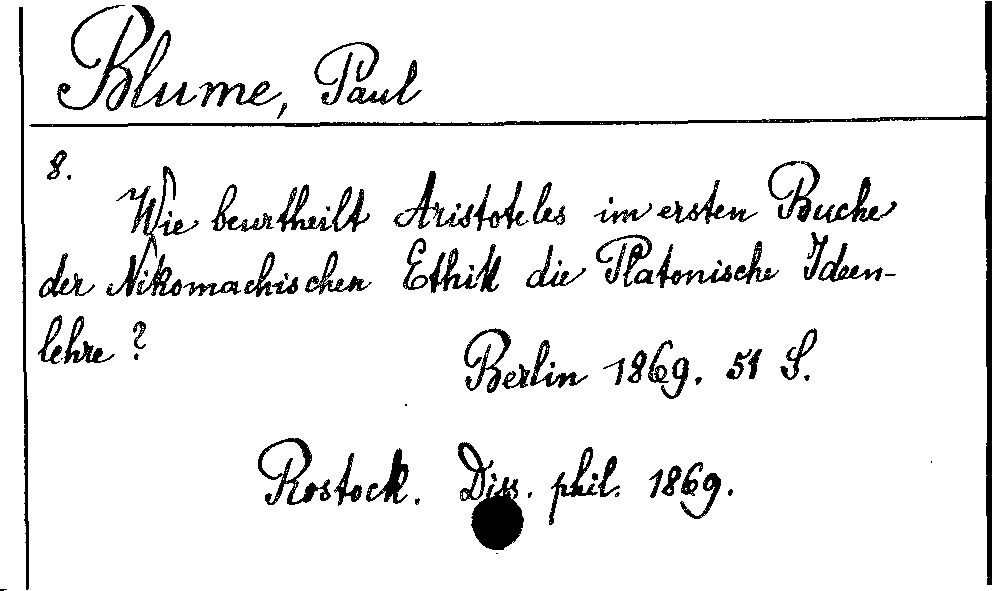 Blume, Paul
8.
Wie beurtheilt Aristoteles im ersten Buche
der Nikomachischen Ethik die Platonische Ideen-
lehre?
Berlin 1869. 51 S.
Rostock. Diss. phil. 1869.